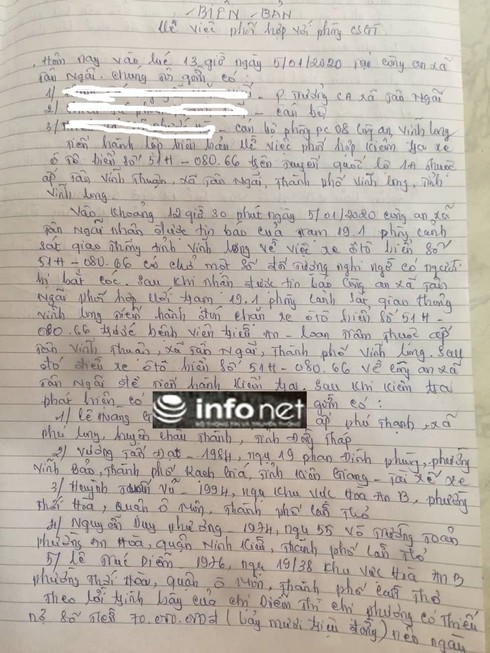 BIÊN BẢN
Về việc phối hợp với phòng CSGT
Hôm nay vào lúc 13 giờ ngày 5/01/2020 tại công an xã
Tân Ngãi. Chúng tôi gồm có:
1/ - P. Trưởng CA xã Tân Ngãi
2/ - cán bộ
3/ - cán bộ phòng PC08 công an Vĩnh Long
tiến hành lập biên bản về việc phối hợp kiểm tra xe
ô tô biển số 51H-080.66 trên tuyến quốc lộ 1A thuộc
ấp Tân Vĩnh Thuận, xã Tân Ngãi, thành phố Vĩnh Long, tỉnh
Vĩnh Long.
Vào khoảng 12 giờ 30 phút ngày 5/01/2020 công an xã
Tân Ngãi nhận được tin báo của trạm 19.1 phòng cảnh
sát giao thông tỉnh Vĩnh Long về việc xe ô tô biển số
51H-080.66 có chở một số đối tượng nghi ngờ có người
bị bắt cóc. Sau khi nhận được tin báo công an xã Tân
Ngãi phối hợp với trạm 19.1 phòng cảnh sát giao thông
Vĩnh Long tiến hành dừng chặn xe ô tô biển số 51H-
080.66 trước bệnh viện Triều An - Loan Trâm thuộc ấp
Tân Vĩnh Thuận, xã Tân Ngãi, thành phố Vĩnh Long. Sau
đó đưa xe ô tô biển số 51H-080.66 về công an xã
Tân Ngãi để tiến hành kiểm tra. Sau khi kiểm tra
phát hiện có gồm có:
1/ Lê Hoàng ấp Phú Thạnh, xã
Phú Long, huyện Châu Thành, tỉnh Đồng Tháp
2/ Vương Tấn Đạt - 1984, ngụ 19 Phan Đình Phùng, phường
Vĩnh Bảo, thành phố Rạch Giá, tỉnh Kiên Giang - Tài xế xe
3/ Huỳnh Vũ - 1994, ngụ khu vực Hòa An B, phường
Thới Hòa, quận Ô Môn, thành phố Cần Thơ
4/ Nguyễn Duy Phương - 1974, ngụ 55 Võ Trường Toản
phường An Hòa, quận Ninh Kiều, thành phố Cần Thơ
5/ Lê Diễm 1976, ngụ 19/38 khu vực Hòa An B
phường Thới Hòa, quận Ô Môn, thành phố Cần Thơ
Theo lời trình bày của chị Diễm thì chị Phương có thiếu
nợ số tiền 70.000.000đ (bảy mươi triệu đồng) nên ngày
infonet
BỘ THÔNG TIN VÀ TRUYỀN THÔNG